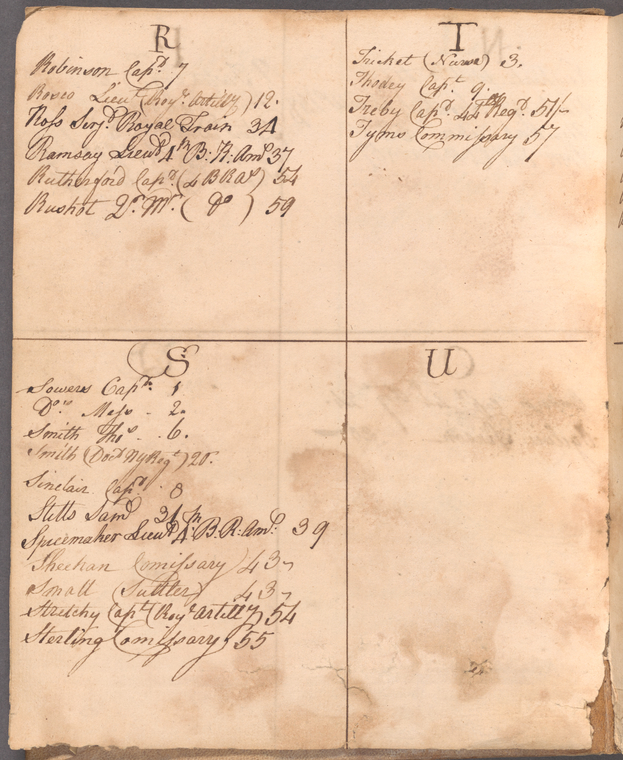 R
Robinson Capt. 7
Rosco Lieut. (Roy. Artilly) 12.
Ross Serjt. Royal Train 34
Ramsay Lieut. 4th B: R: Amn 37
Rutherford Capt. (4 B R A) 54
Rushot Qr. Mr. ( Do ) 59
T
Tricket (Nurse) 3.
Thodey Capt. 9.
Treby Capt. 44th Regt. 51/-
Tyms Commissary 57
S
Sowers Capt. 1
Do. Majr. 2.
Smith Thos. 6.
Smith (Doct. NY Regt) 20.
Sinclair Capt. 8
Stitts Saml 31
Spicemaker Lieut. 4th B: R: Amn: 39
Sheehan Comissary) 43
Small (Suttler) 43
Stretchy Capt. (Roy. Artilly) 54
Sterling Comissary 55
U